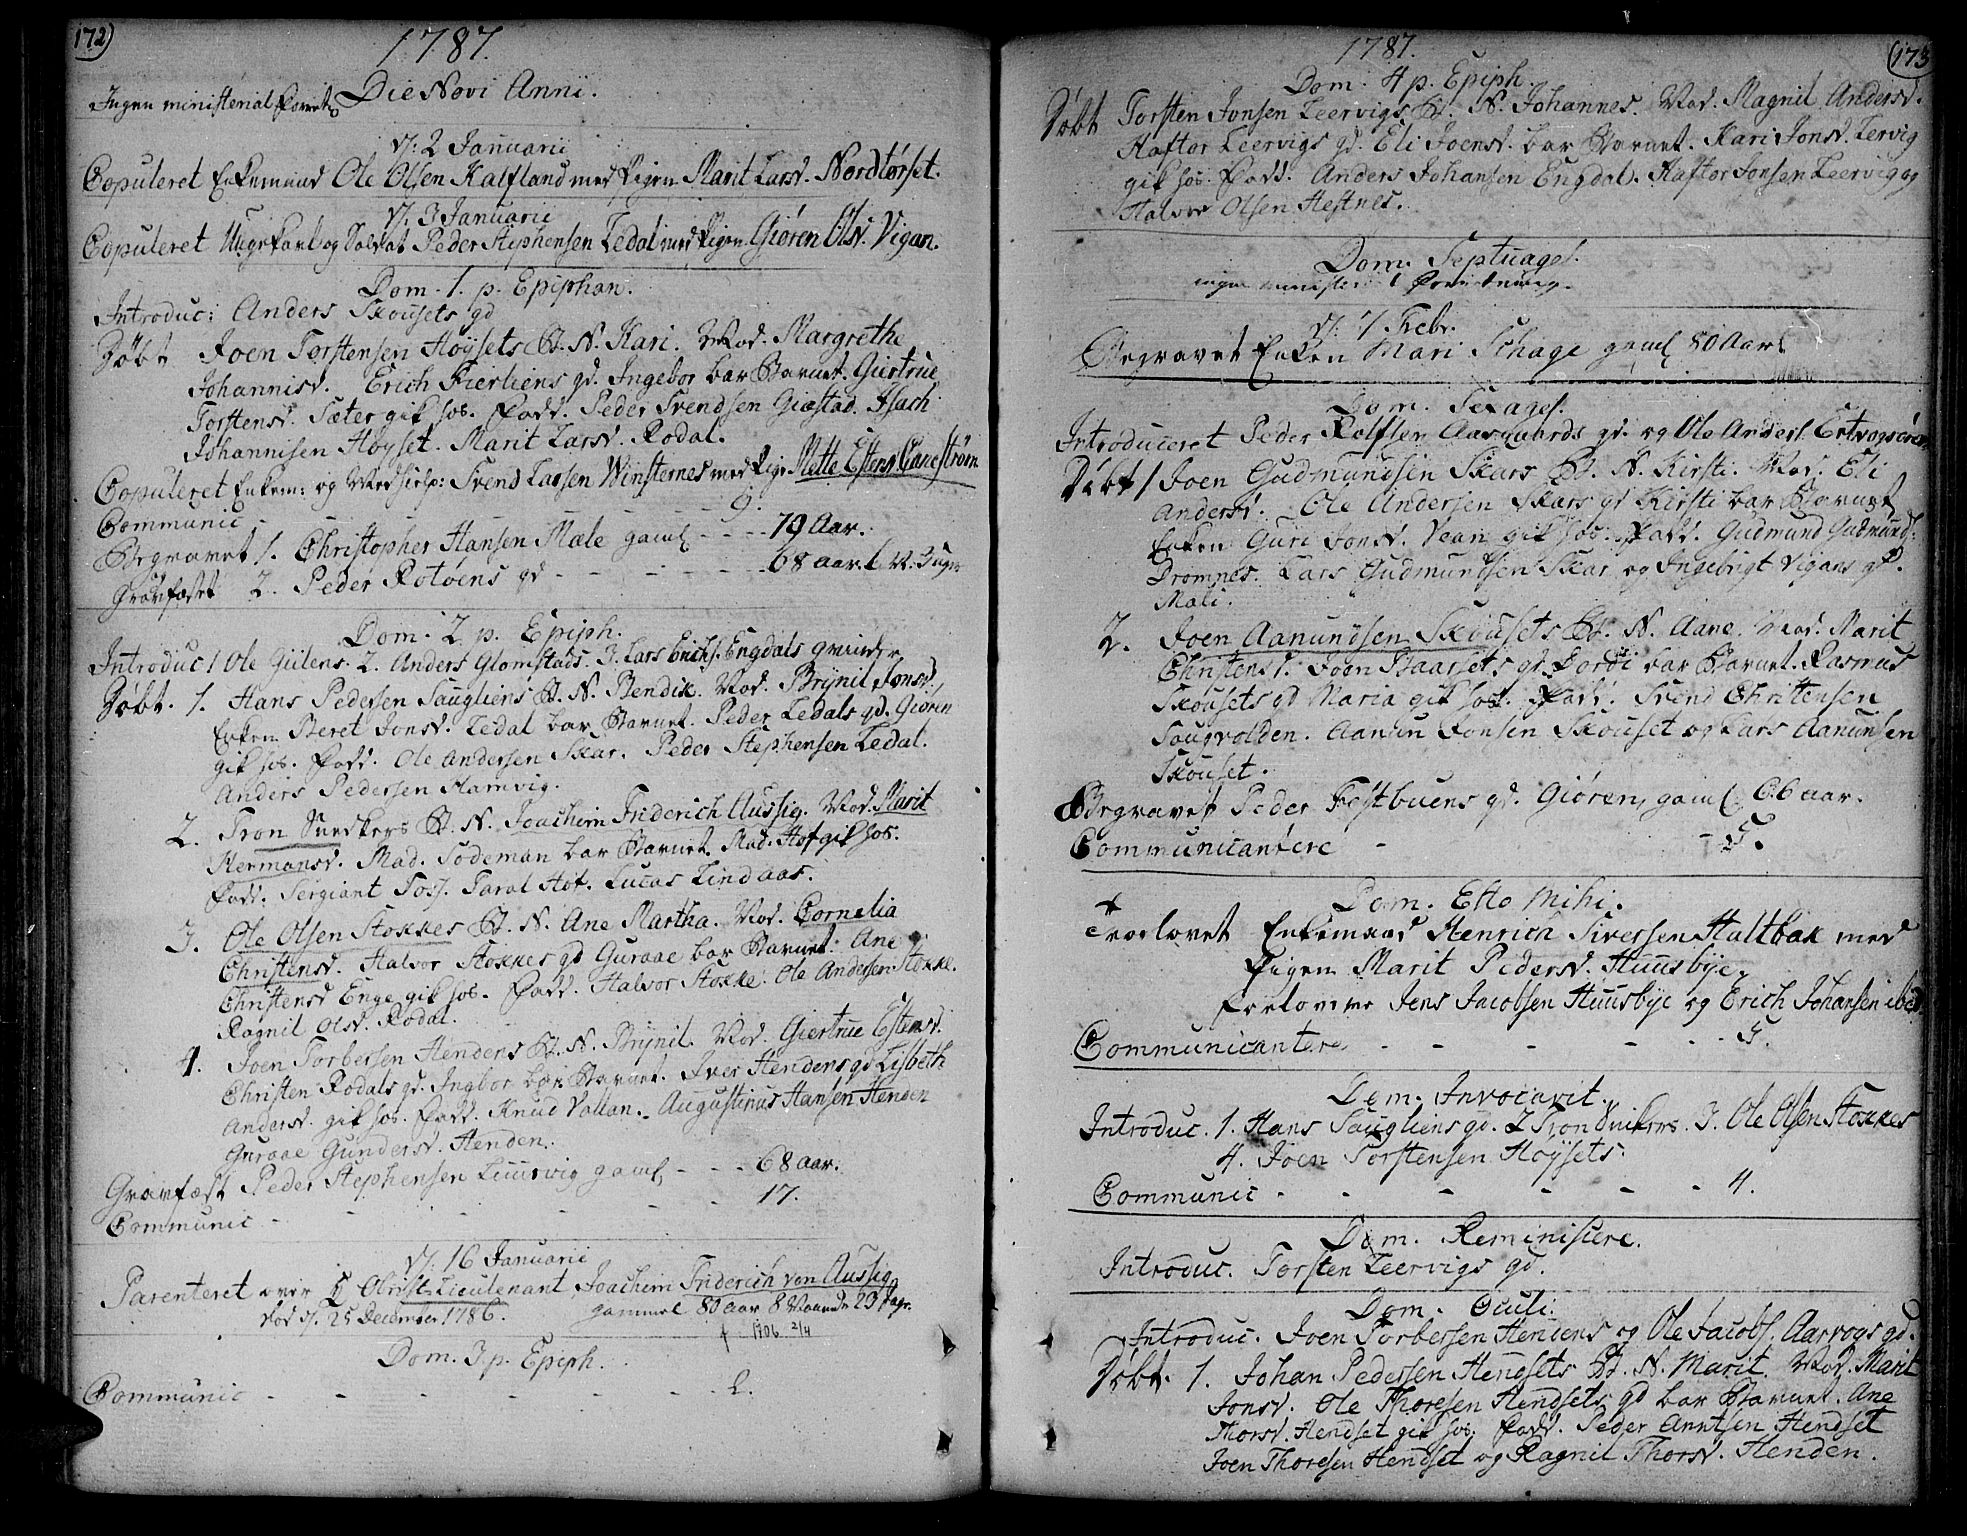 172)
1787.
Die Novi Anni.
Ingen ministerial Forretn
d/: 2 Januarii
Copuleret Enkemand Ole Olsen Kalfland med Pigen Marit Larsd. Nordtørset.
d/: 3 Januarii
Copuleret Ungekarl og Soldat Peder Stephensen Ledal med Pigen Giøren Olsd. Vigan.
Dom. 1. p. Epiphan.
Introduc: Anders Skousets qd
Døbt Joen Torstensen Høysets B. N. Kari. Mod. Margrethe
Johannisd. Erich Fierliens qd. Ingebor bar Barnet. Giertrue
Torstensd. Sæter gik hos. Fadd. Peder Svendsen Giæstad. Isach
Johannisen Høyset. Marit Larsd. Rodal.
Copuleret Enkem: og Medhielp: Svend Larsen Winsternes med Pige Mette Estensd
Communic - - - - - 9.
Begravet 1. Christopher Hansen Mæle gaml - - - 79 Aar.
Gravfæstet 2. Peder Rotøens qd - - - - - 68 aar
Dom. 2 p. Epiph.
Introduc 1 Ole Gülens 2. Anders Glomstads. 3. Lars Erichs. Engdals qvinder
Døbt. 1. Hans Pedersen Saugliens B. N. Bendik. Mod. Brynil Jonsd.
Enken Beret Jonsd. Ledal bar Barnet. Peder Ledals qd. Giøren
gik hos. Fadd. Ole Andersen Skar. Peder Stephensen Ledal.
Anders Pedersen Hamvig.
2. Tron Snedkers B. N. Joachim Friderich Aussig. Mod. Marit
Hermansd. Mad. Sodeman bar Barnet. Mad. Hof gik hos.
Fadd. Sergiant Foss. Taral Hof. Lucas Lindaas.
3. Ole Olsen Stokkes B. N. Ane Martha. Mod. Cornelia
Christensd. Halvor Stokkes qd Guraae bar Barnet. Ane
Christensd Enge gik hos. Fadd. Halvor Stokke. Ole Andersen Stokke.
Ragnil Olsd. Rodal.
4. Joen Torbersen Hendens B. N. Brynil. Mod. Giertrue Estensd.
Christen Rodals qd. Ingbor bar Barnet. Iver Hendens qd Lisbeth
Andersd. gik hos. Fadd. Knud Vallan. Augustinus Hansen Henden
Guraae Gundersd. Henden.
Gravfæst Peder Stephensen Liusvig gaml - - - 68 aar.
Communic - - - - - 17.
d/: 16 Januarii
Parenteret over Obrist-Lieutenant Joachim Friderich von Aussig
død d/. 25 December 1786. gammel 80 aar 8 Maaneder 23 Dage.
1706 2/4
Dom. 3 p. Epiph.
Communic - - - - - - 2.
(173
1787.
Dom. 4 p. Epiph.
Døbt Torsten Jonsen Leervigs B. N. Johannes. Mod. Magnil Andersd.
Haftor Leervigs qd. Eli Joensd. bar Barnet. Kari Jonsd. Lervig
gik hos. Fadd. Anders Johansen Engdal. Haftor Jonsen Leervig og
Halvor Olsen Hestnes.
Dom. Septuages.
ingen ministerial Forretning.
d/: 7 Febr.
Begravet Enken Mari Schage gaml 80 Aar
Dom. Sexages.
Introduceret Peder Rolfsen Aasgaards qd. og Ole Anders. Ertvogsøren
Døbt 1 Joen Gudmundsen Skars B. N. Kirsti. Mod. Eli
Andersd. Ole Andersen Skars qd Kirsti bar Barnet
Enken Guri Jonsd. Vean gik hos. Fadd. Gudmund Gudmunds:
Dromnes. Lars Gudmundsen Skar og Ingebrigt Vigans qd.
Mali.
2. Joen Aanundsen Skousets B. N. Aane. Mod. Marit
Christensd. Joen Staarsets qd. Dordi bar Barnet. Rasmus
Skousets qd Maria gik hos. Fadd. Svend Christensen
Saugvolden. Aanun Jonsen Skouset og Lars Aanunsen
Skouset.
Begravet Peder Festbuens qd. Giøren, gaml 66 aar.
Communicantere - - 5.
Dom. Esto Mihi.
Trolovet Enkemand Henrich Siversen Haltbak med
Pigen Marit Pedersd. Huusbye.
Forlovere Jens Jacobsen Huusbye og Erich Johansen ibid.
Communicantere - - - - - 5.
Dom. Invocavit.
Introduc. 1. Hans Saugliens qd. 2 Tron Snikers. 3. Ole Olsen Stokkes
4. Joen Torstensen Høysets.
Communic - - - - - 4.
Dom. Reminiscere.
Introduc. Torsten Leervigs qd.
Dom. Oculi.
Introduc. Joen Torbersen Hendens og Ole Jacobs. Aarvogs qd.
Døbt. 1. Johan Pedersen Hendsets B. N. Marit. Mod. Marit
Jonsd. Ole Thoresen Hendsets qd bar Barnet. Ane
Thorsd. Hendset gik hos. Fadd. Peder Anntsen Hendset
Joen Thoresen Hendset og Ragnil Thorsd. Henden.